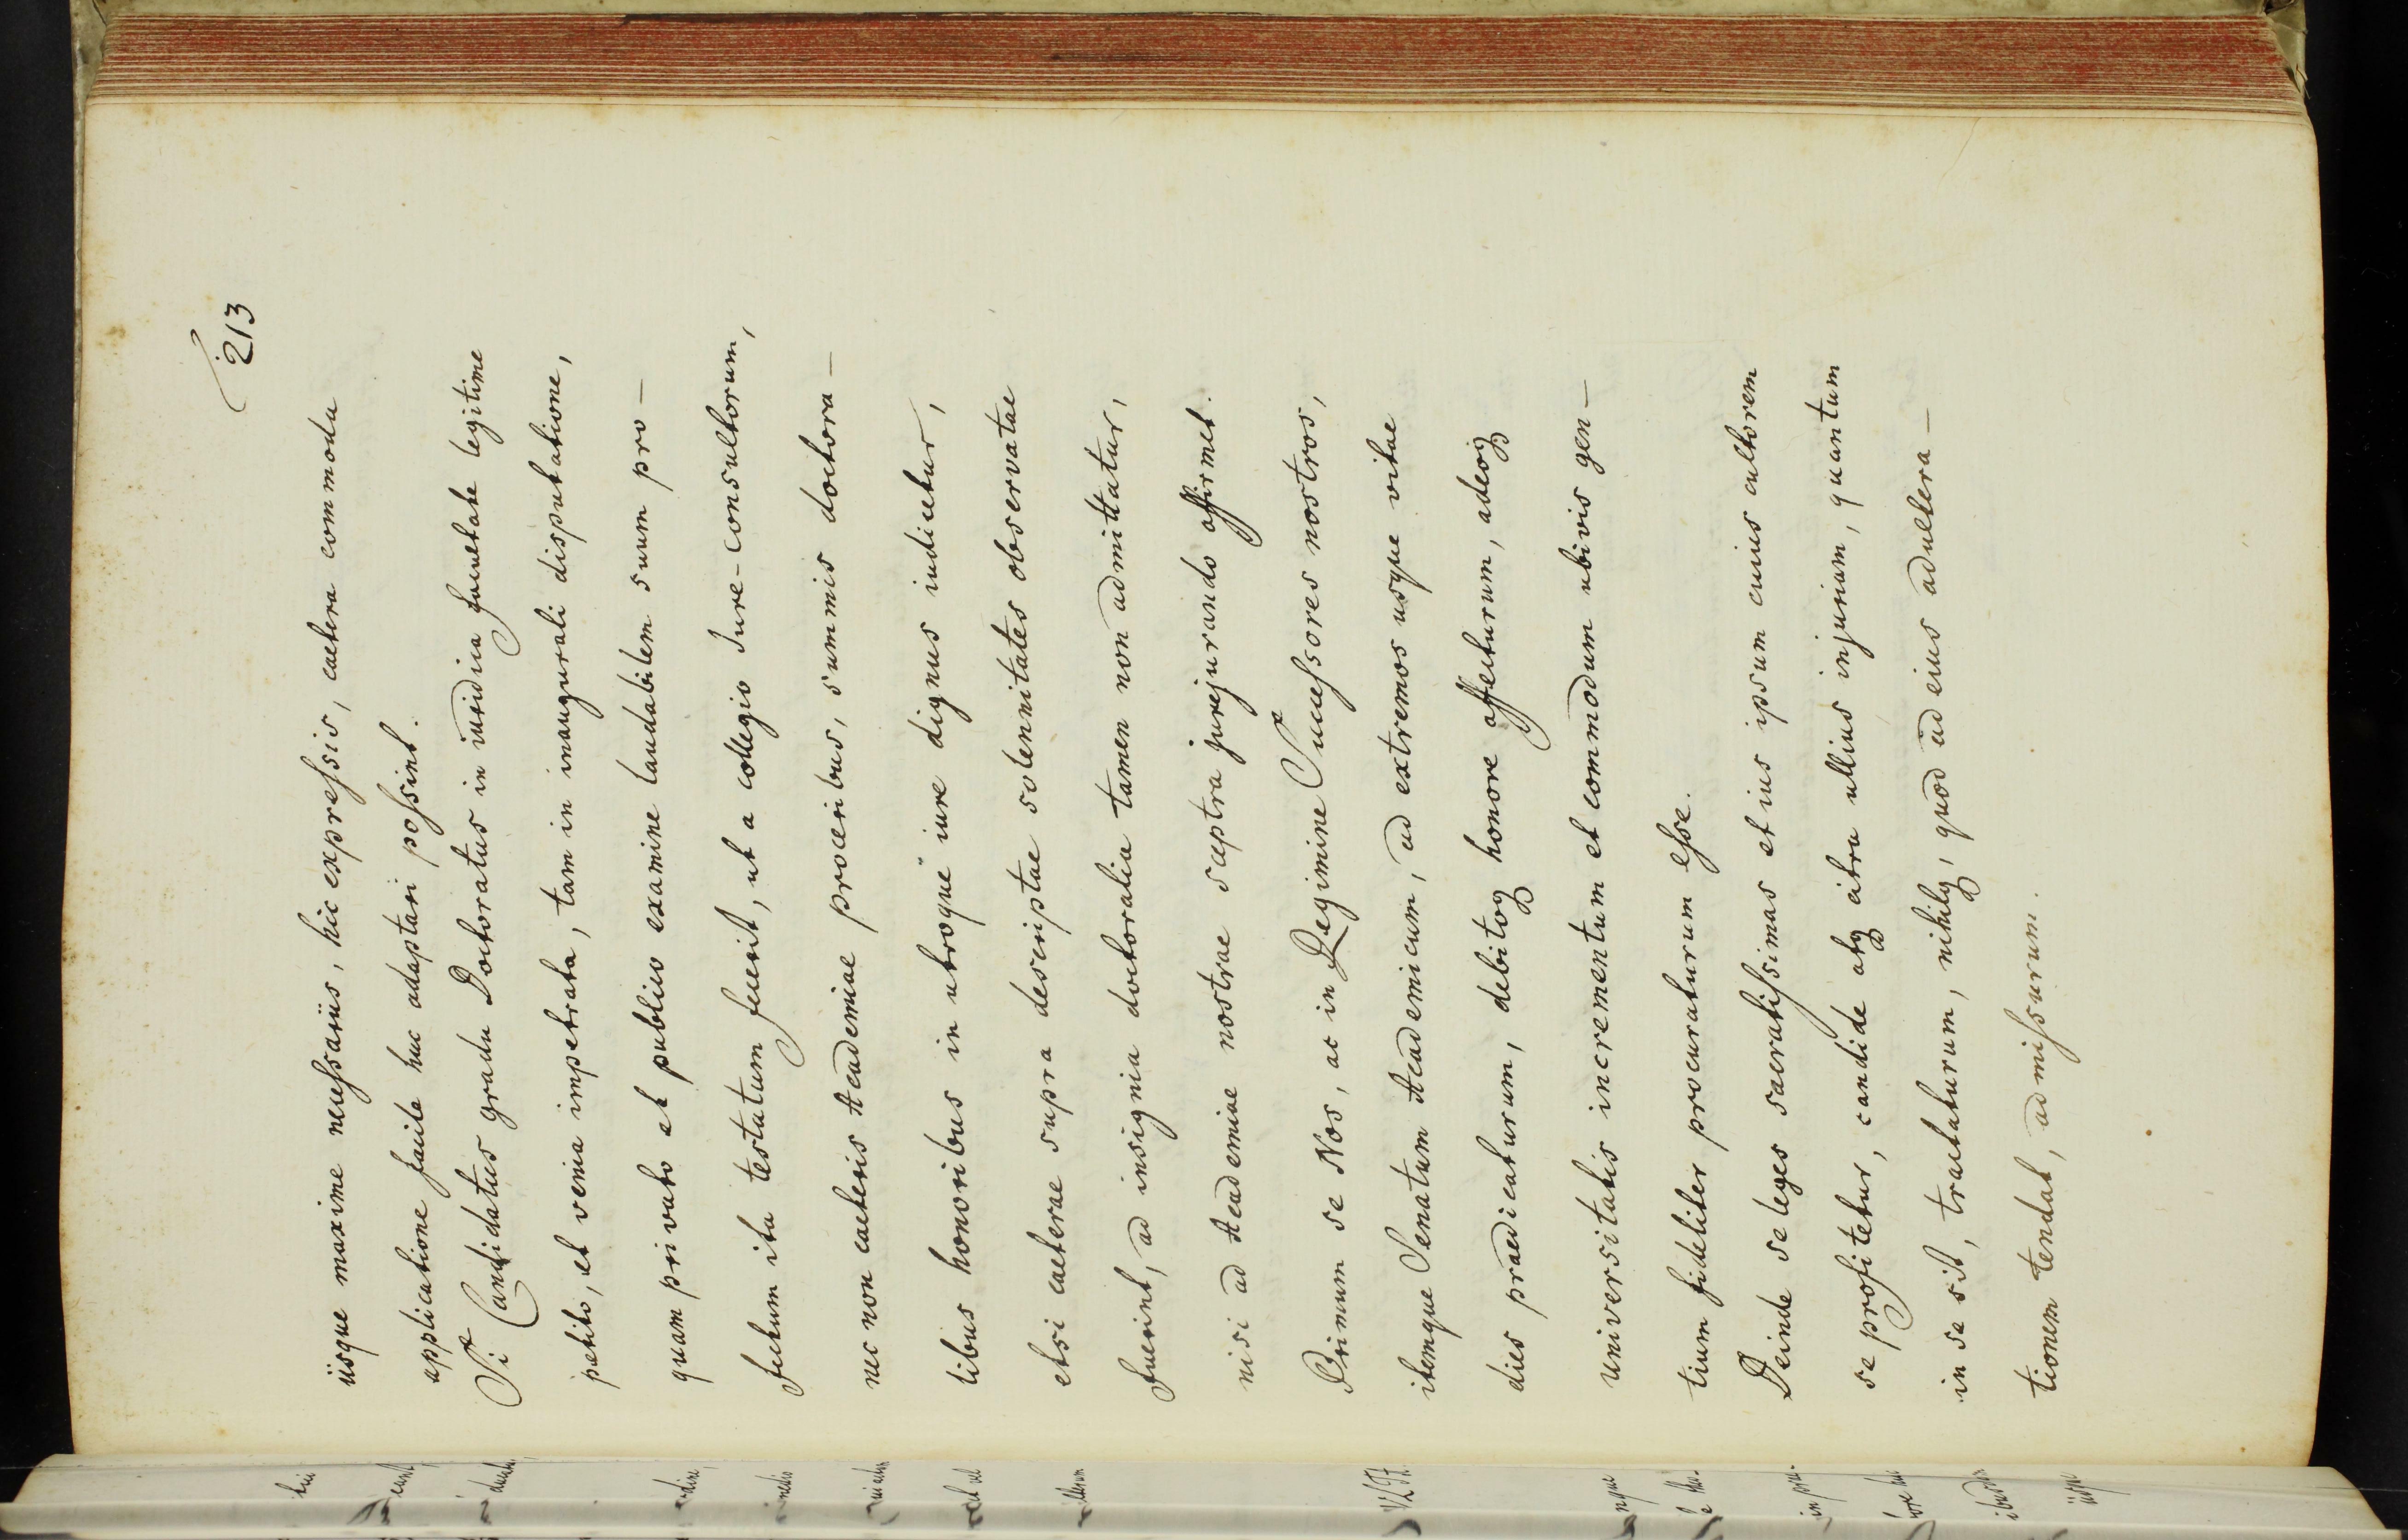 213
iisque maxime neceſsariis, hic expreſsis, caetera commoda
applicatione facile huc adaptari poſsint.
Si Candidatus gradu Doctoratus in iuridica facultate legitime
petito, et venia impetrata, tam in inaugurali disputatione,
quam privato et publico examine laudabilem suum pro-
fectum ita testatum fecerit, ut a collegio Jure-consultorum,
nec non caeteris Academiae proceribus, summis doctora-
libus honoribus in utroque iure dignus iudicetur,
etsi caeterae supra descriptae solennitates observatae
fuerint, ad insignia doctoralia tamen non admittatur,
nisi ad Academiae nostrae sceptra jurejurando affirmet.
Primum se Nos, ac in Regimine Succeſsores nostros,
itemque Senatum Academicum, ad extremos usque vitae
dies praedicaturum, debitoq honore affecturum, adeoq
universitatis incrementum et commodum ubivis gen-
tium fideliter procuraturum eſse.
Deinde se leges sacratiſsimas et ius ipsum cuius cultorem
se profitetur, candide atq citra ullius injuriam, quantum
in se sit, tractaturum, nihilq, quod ad eius adultera-
tionem tendat, admiſsurum.